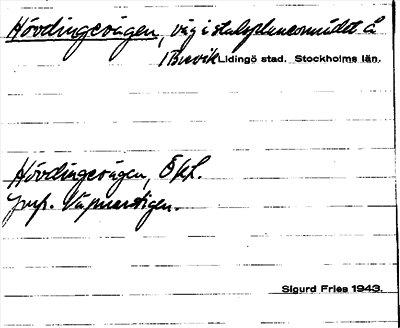 Hövdingevägen, väg i stadsplaneområdet å
Brevik Lidingö stad. Stockholms län.
Hövdingevägen, ÖKL.
Jmf. Väpnarstigen.
Sigurd Fries 1943.